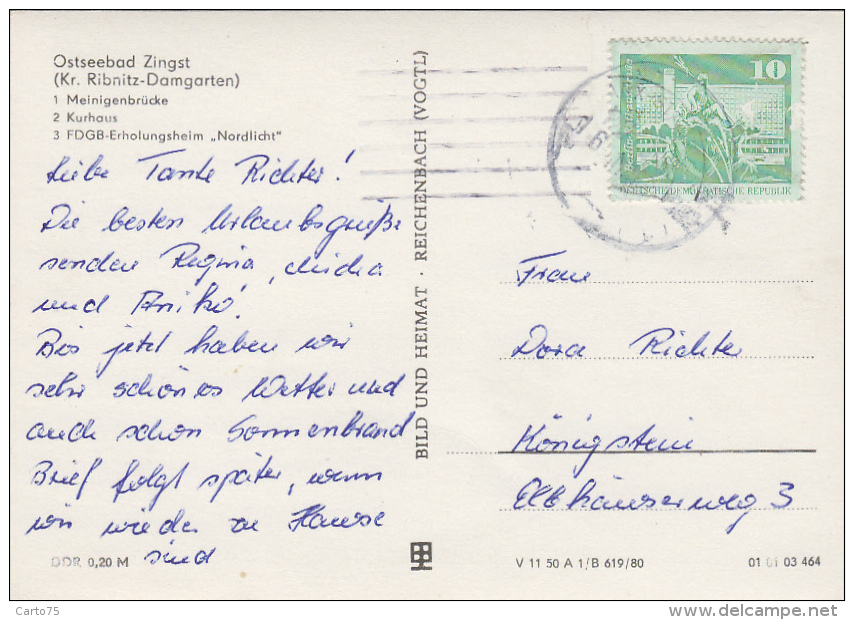 Ostseebad Zingst
(Kr. Ribnitz-Damgarten)
1 Meinigenbrücke
2 Kurhaus
3 FDGB-Erholungsheim „Nordlicht"
Liebe Tante Richter!
Die besten Urlaubsgrüße
senden Regina, Micha
und Aniko!
Bis jetzt haben wir
sehr schönes Wetter und
auch schon Sonnenbrand
Brief folgt später, wenn
wir wieder zu Hause
sind
DDR 0,20 M
BILD UND HEIMAT · REICHENBACH (VOGTL)
10
DEUTSCHE DEMOKRATISCHE REPUBLIK
Frau
Dora Richter
Königstein
Elbhäuserweg 3
V 11 50 A 1/B 619/80
01 01 03 464
Carto75
www.delcampe.net